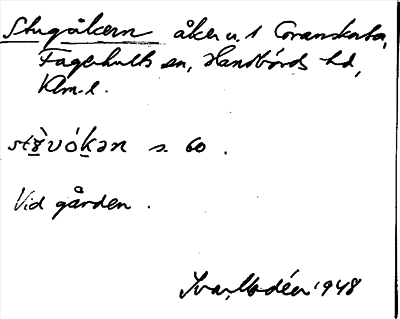 Stugåkern åker u. 1 Goranskorba,
Fagerhults sn, Handbörds hd,
Klm. l.
stʉ̀vókən s. 60.
Vid gården.
Ivar Modéer 1948